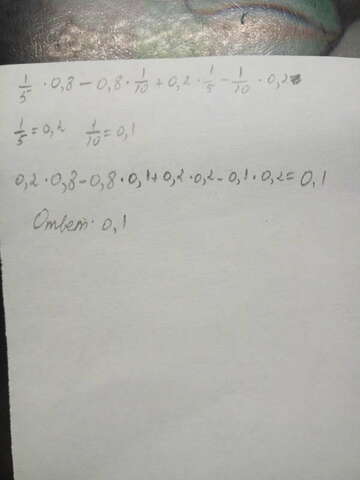 1/5 · 0,8 - 0,8 · 1/10 + 0,2 · 1/5 - 1/10 · 0,2
1/5 = 0,2 1/10 = 0,1
0,2 · 0,8 - 0,8 · 0,1 + 0,2 · 0,2 - 0,1 · 0,2 = 0,1
Ответ: 0,1